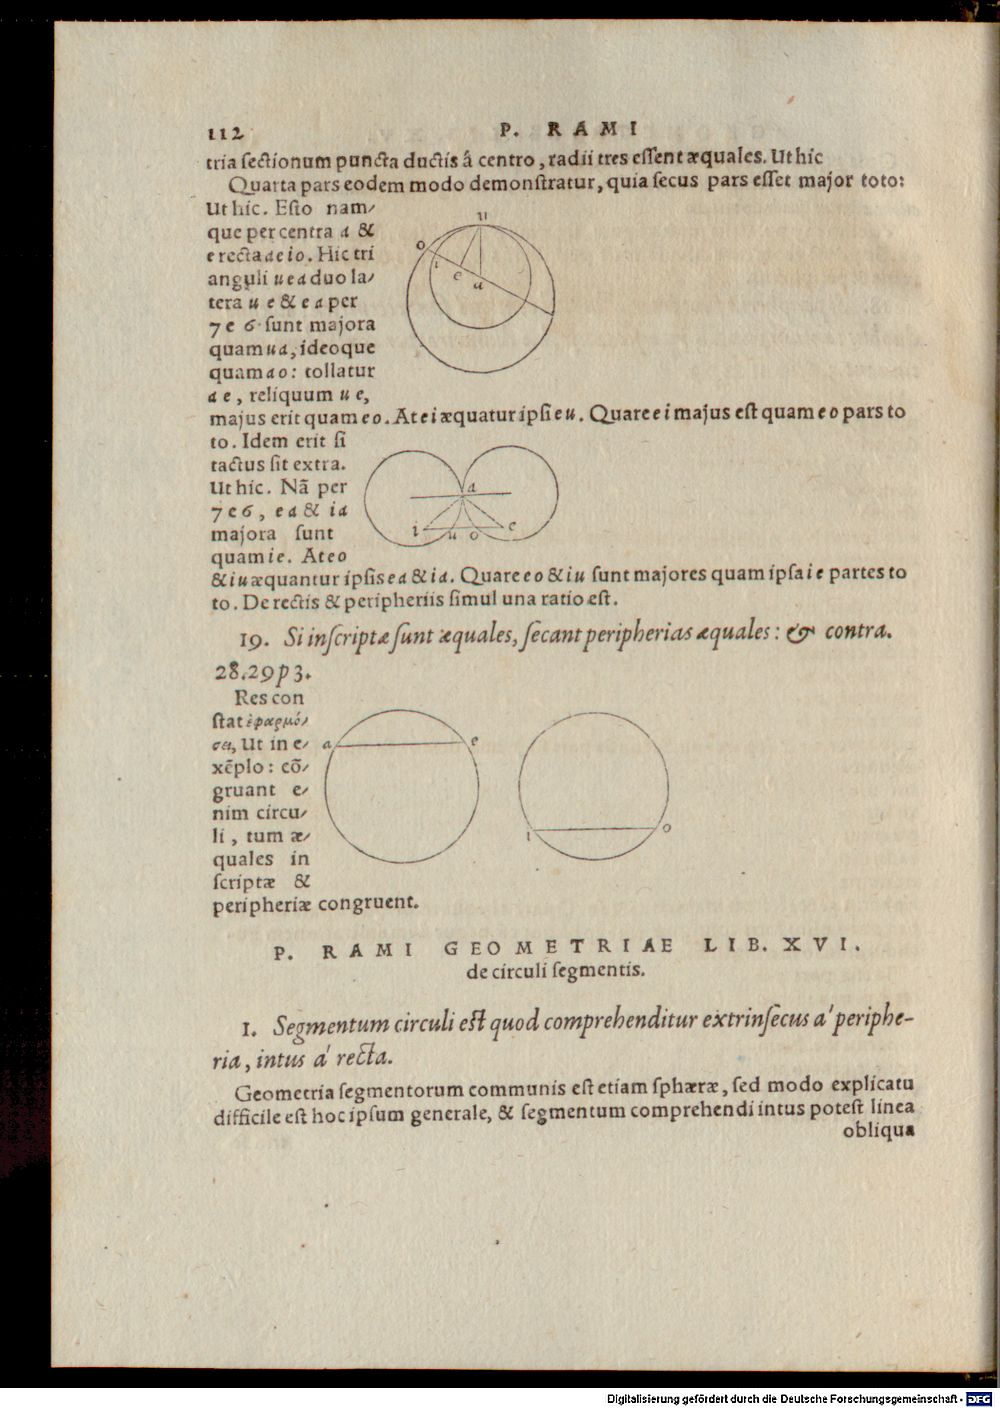 112 P. RAMI
tria sectionum puncta ductis â centro, radii tres essent æquales. Ut hic
Quarta pars eodem modo demonstratur, quia secus pars esset major toto:
Ut hic. Esto nam-
que per centra a &
e recta aeio. Hic tri
anguli uea duo la-
tera ue & ea per
7 e 6 sunt majora
quam ua, ideoque
quam ao: tollatur
ae, reliquum ue,
u
o
i
e
a
majus erit quam eo. At ei æquatur ipsi eu. Quare ei majus est quam eo pars to
to. Idem erit si
tactus sit extra.
Ut hic. Nã per
7 e 6, ea & ia
majora sunt
quam ie. At eo
a
i
u
o
e
& iu æquantur ipsis ea & ia. Quare eo & iu sunt majores quam ipsa ie partes to
to. De rectis & peripheriis simul una ratio est.
19. Si inscriptæ sunt æquales, secant peripherias æquales: & contra.
28.29 p 3.
Res con
stat ἐφαρμό-
σει, Ut in e-
xẽplo: cõ-
gruant e-
nim circu-
li, tum æ-
quales in
scriptæ &
a
e
i
o
peripheriæ congruent.
P. RAMI GEOMETRIAE LIB. XVI.
de circuli segmentis.
1. Segmentum circuli est quod comprehenditur extrinsecus a' periphe-
ria, intus a' recta.
Geometria segmentorum communis est etiam sphæræ, sed modo explicatu
difficile est hoc ipsum generale, & segmentum comprehendi intus potest linea
obliqua
Digitalisierung gefördert durch die Deutsche Forschungsgemeinschaft - DFG